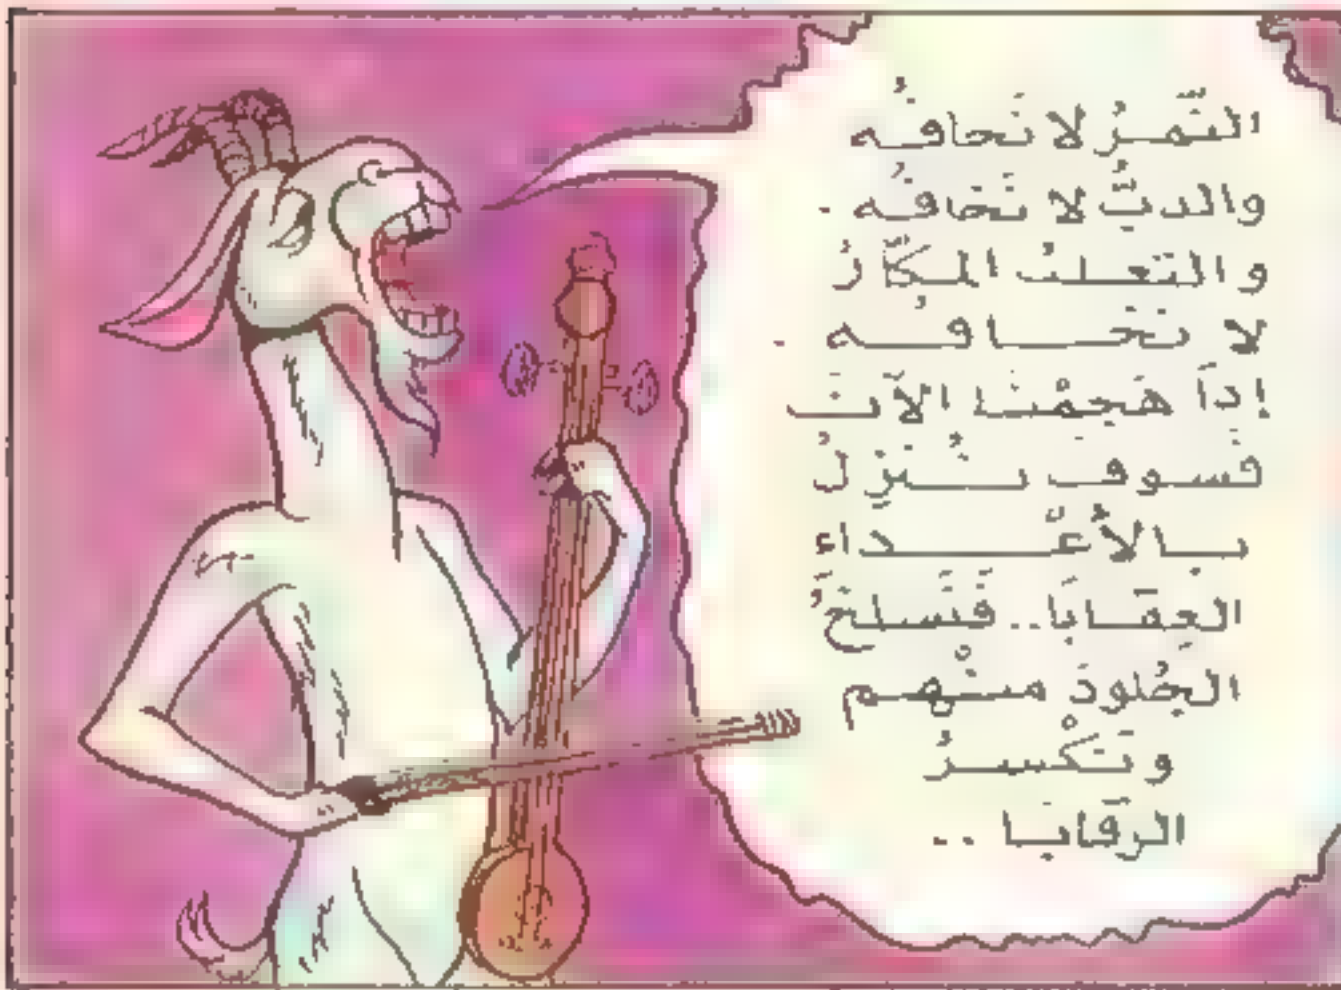 النّمرُ لا نَخافُه
والدبُّ لا نَخافُه .
والثعلبُ المكّارُ
لا نَخافُه .
إذا هَجَمْنا الآنَ
فسوف نُنزِلُ
بالأعْداء
العِقابَا.. فنَسلخَُ
الجُلودَ منْهم
ونَكْسرُ
الرقابا ..